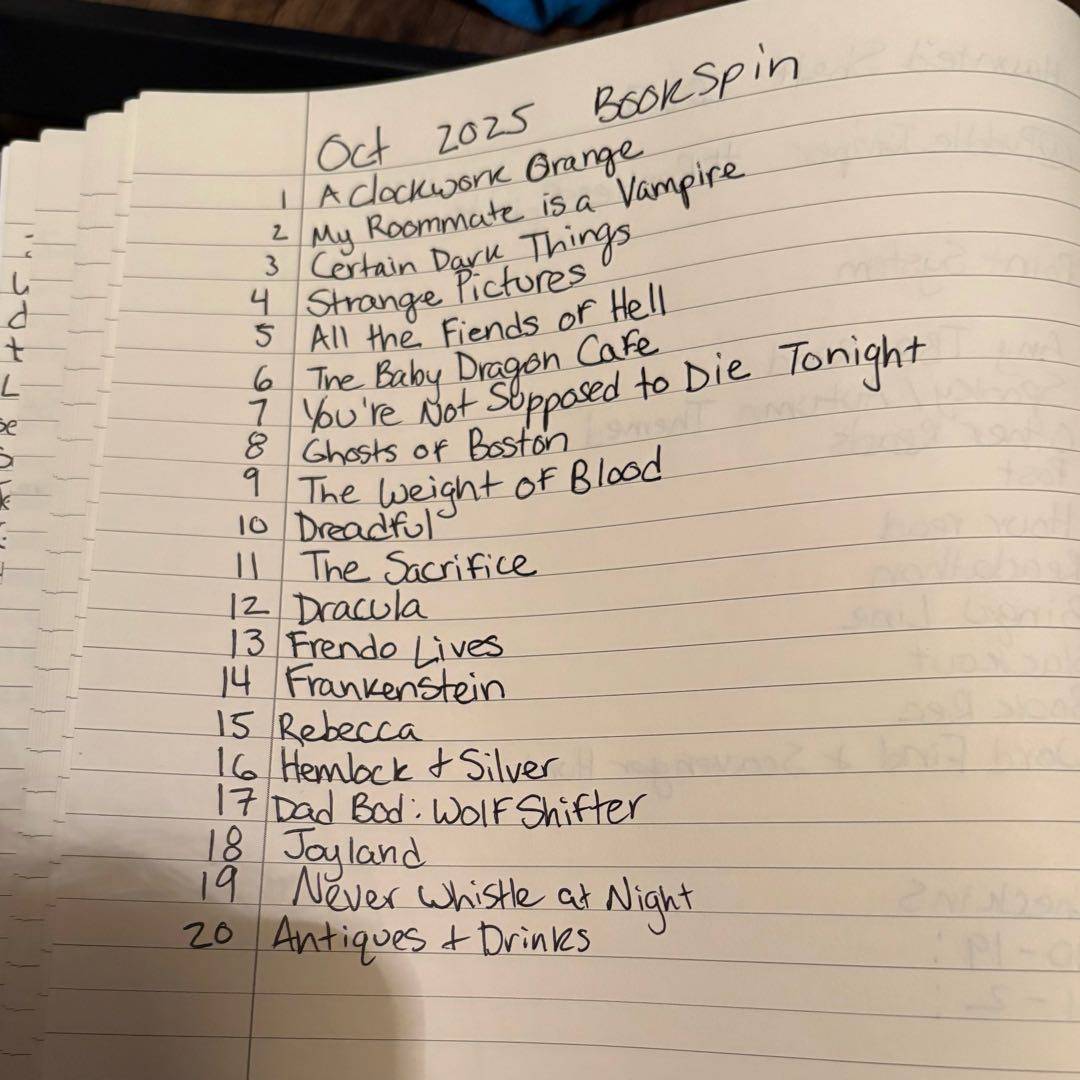 Oct 2025 BookSpin
1 A Clockwork Orange
2 My Roommate is a Vampire
3 Certain Dark Things
4 Strange Pictures
5 All the Fiends of Hell
6 The Baby Dragon Cafe
7 You're Not Supposed to Die Tonight
8 Ghosts of Boston
9 The Weight of Blood
10 Dreadful
11 The Sacrifice
12 Dracula
13 Frendo Lives
14 Frankenstein
15 Rebecca
16 Hemlock + Silver
17 Dad Bod: Wolf Shifter
18 Joyland
19 Never Whistle at Night
20 Antiques + Drinks